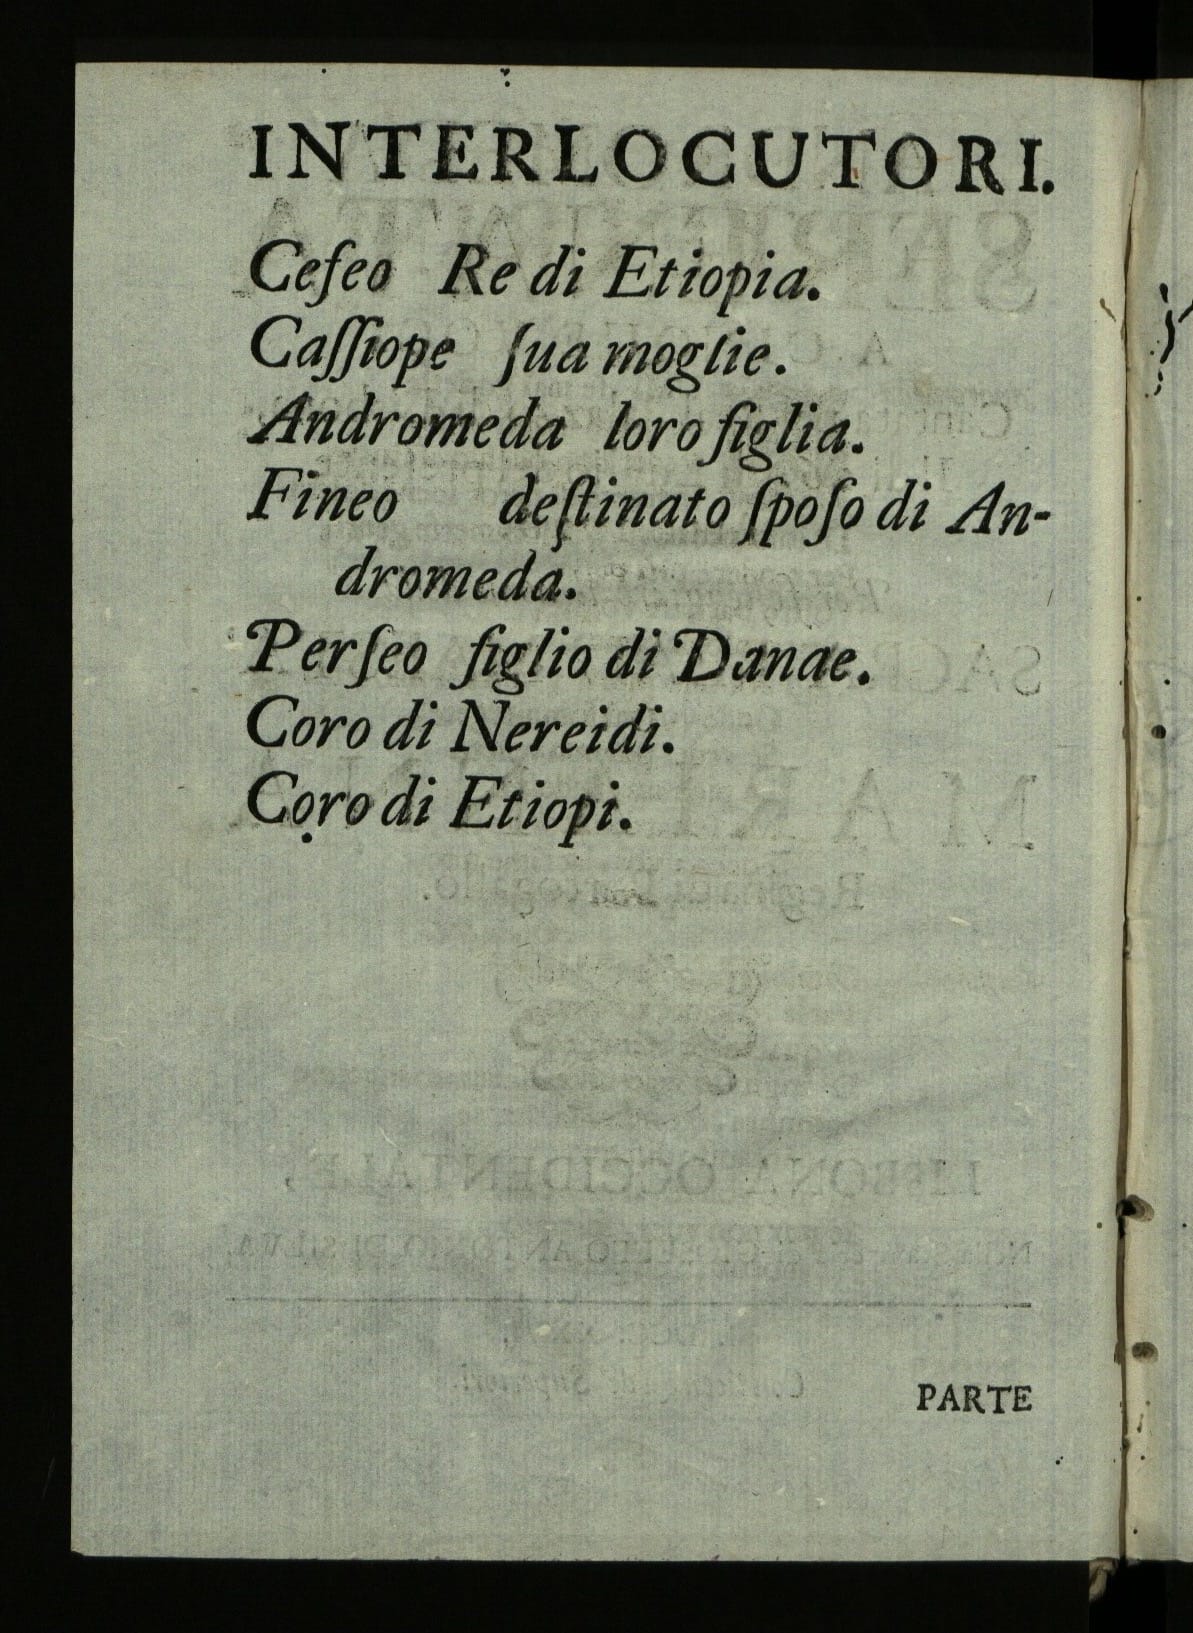 INTERLOCUTORI.
Ceſeo Re di Etiopia.
Caſſiope ſua moglie.
Andromeda loro figlia.
Fineo deſtinato ſpoſo di An-
dromeda.
Perſeo figlio di Danae.
Coro di Nereidi.
Coro di Etiopi.
PARTE